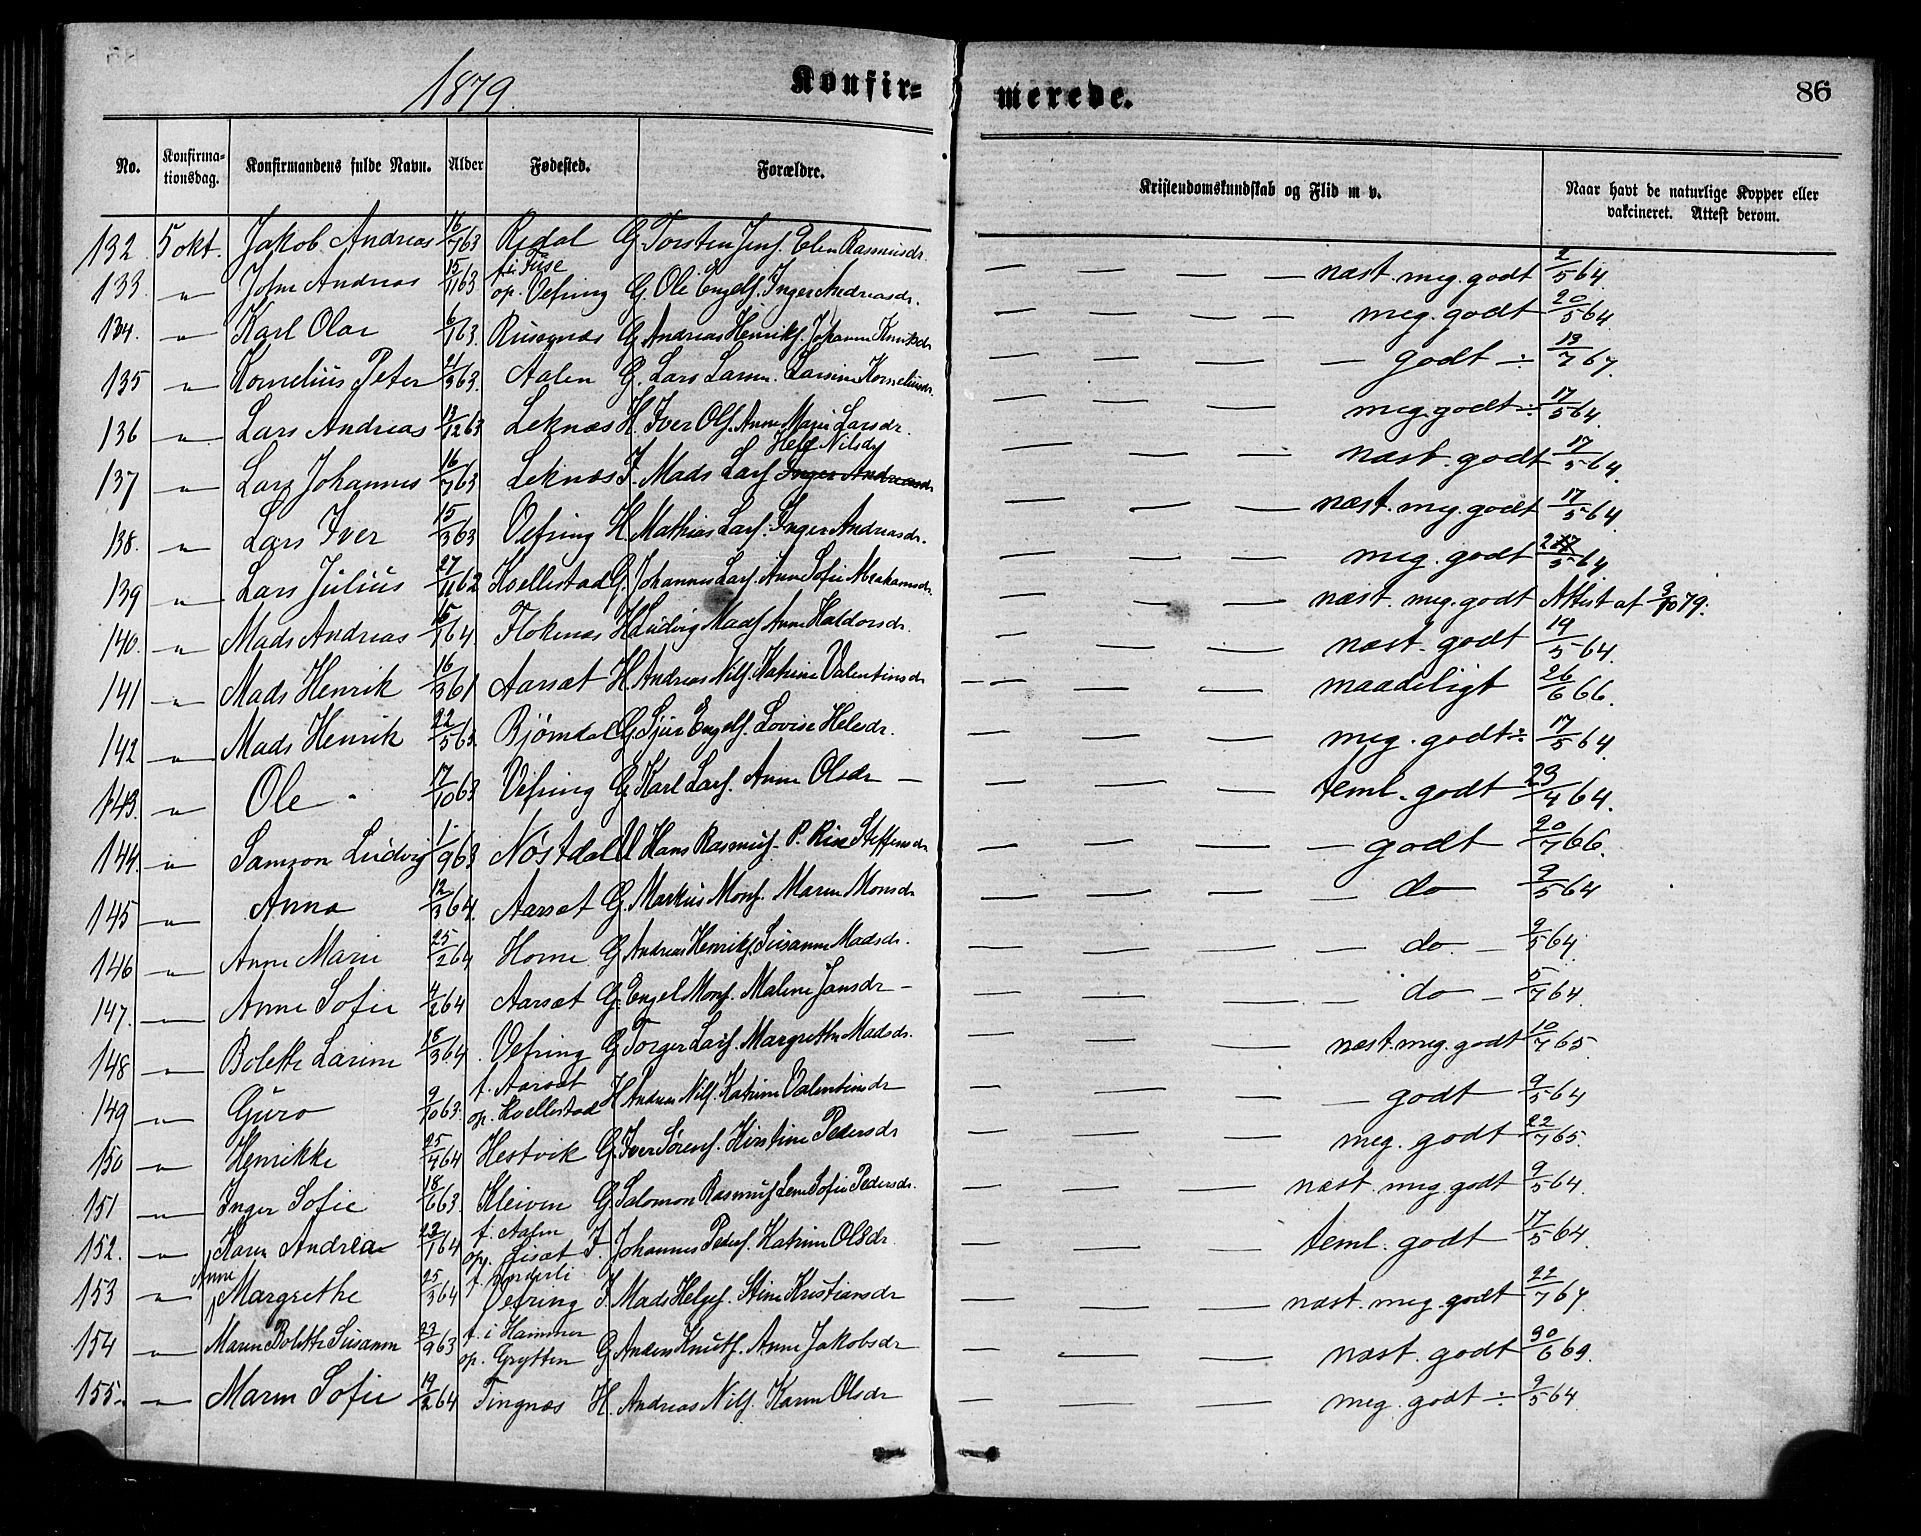 1879.
Konfir=
merede.
86
No.
Konfirma-
tionsdag.
Konfirmandens fulde Navn.
Alder
Fødested.
Forældre.
Kristendomskundskab og Flid m v.
Naar havt de naturlige Kopper eller
vakcineret. Attest derom.
132. 5 okt. Jakob Andreas 16/7 63 Redal G. Torsten Jens. Elen Rasmusdr. — — — — næst. meg. godt 2/5 64.
133. " John Andreas 15/11 63 f. i Fuse op. Vefring G. Ole Engels. Inger Andreasdr. — — — — meg. godt 20/5 64.
134. " Karl Olai 6/1 63. Rusegnæs G. Andreas Henriks. Johanne Knutsdr — — — — godt ÷ 13/7 67.
135 " Kornelius Peter 21/3 63. Aalen G. Lars Larsen. Larsine Korneliusdr. — — — meg. godt ÷ 17/5 64.
136 " Lars Andreas 13/12 63 Leknæs H. Iver Ols. Anne Marie Larsdr. — — — næst. godt 17/5 64.
Helg Nilsdr
137 " Lars Johannes 16/7 63 Leknæs I. Mads Lars. Inger Andreasdr — — — næst. meg. godt 17/5 64
138. " Lars Iver 15/3 63 Vefring H. Mathias Lars. Inger Andreasdr. — — — meg. godt 20/5 64
139 " Lars Julius 27/11 62 Kvellestad G. Johannes Lars. Anne Sofie Abrahamsdr. — — — næst. meg. godt Attest af 3/10 79.
140. " Mads Andreas 15/1 64 Flokenæs H. Ludvig Mads. Anne Haldorsdr. — — — næst. godt 19/5 64.
141 " Mads Henrik 16/3 61 Aarsæt H. Andreas Nils. Katrine Valentinsdr — — — — maadeligt 26/6 66.
142 " Mads Henrik 22/5 63. Bjørndal G. Sjur Engels. Lovise Helesdr. — — — meg. godt ÷ 17/5 64.
143. " Ole 17/10 63 Vefring G. Karl Lars. Anne Olsdr — — — — teml. godt 23/4 64.
144. " Samson Ludvig 1/9 63 Nøstdal U Hans Rasmus. P. Rise Steffensdr — — — — godt 20/7 66.
145 " Anna 12/3 64. Aarsæt G. Markus Mons. Maren Monsdr — — — do 9/5 64
146 " Anne Marie 25/2 64 Horne G. Andreas Henriks. Susanne Madsdr. — — — — do — 9/5 64.
147. " Anne Sofie 4/2 64 Aarsæt G. Engel Mons. Malene Jansdr — — — — — do — 5/7 64.
148 " Bolette Larine 18/3 64. Vefring G. Torger Lars. Margrethe Madsdr. — — — næst. meg. godt 10/7 65.
149 " Guro 9/10 63. f. Aarsæt op. Kvellestad H. Andreas Nils. Katrine Valentinsdr — — — — godt 9/5 64
150 " Henrikke 25/4 64 Hestvik G. Iver Sørens. Kirstine Pedersdr — — — meg. godt 22/7 65.
151 " Inger Sofie 18/6 63. Kleiven G. Salomon Rasmus. Lene Sofie Pedersdr. — — — næst. meg. godt 9/5 64.
152. " Karen Andrea 23/1 64 f. Aalen op. Liset I. Johannes Peders. Katrine Olsdr. — — — teml. godt 17/5 64.
153 " Anne Margrethe 25/3 64 f. Vefring I. Mads Helges. Stine Kristiansdr — — — næst. meg. godt 22/7 67.
154 " Maren Bolette Susanne 23/9 63 f. i Hammer op. Grytten G. Anders Knuts. Anne Jakobsdr — — — næst. godt 30/6 69.
155. " Maren Sofie 19/2 64 Tingnæs H. Andreas Nils. Karen Olsdr — — — meg. godt ÷ 9/5 64.